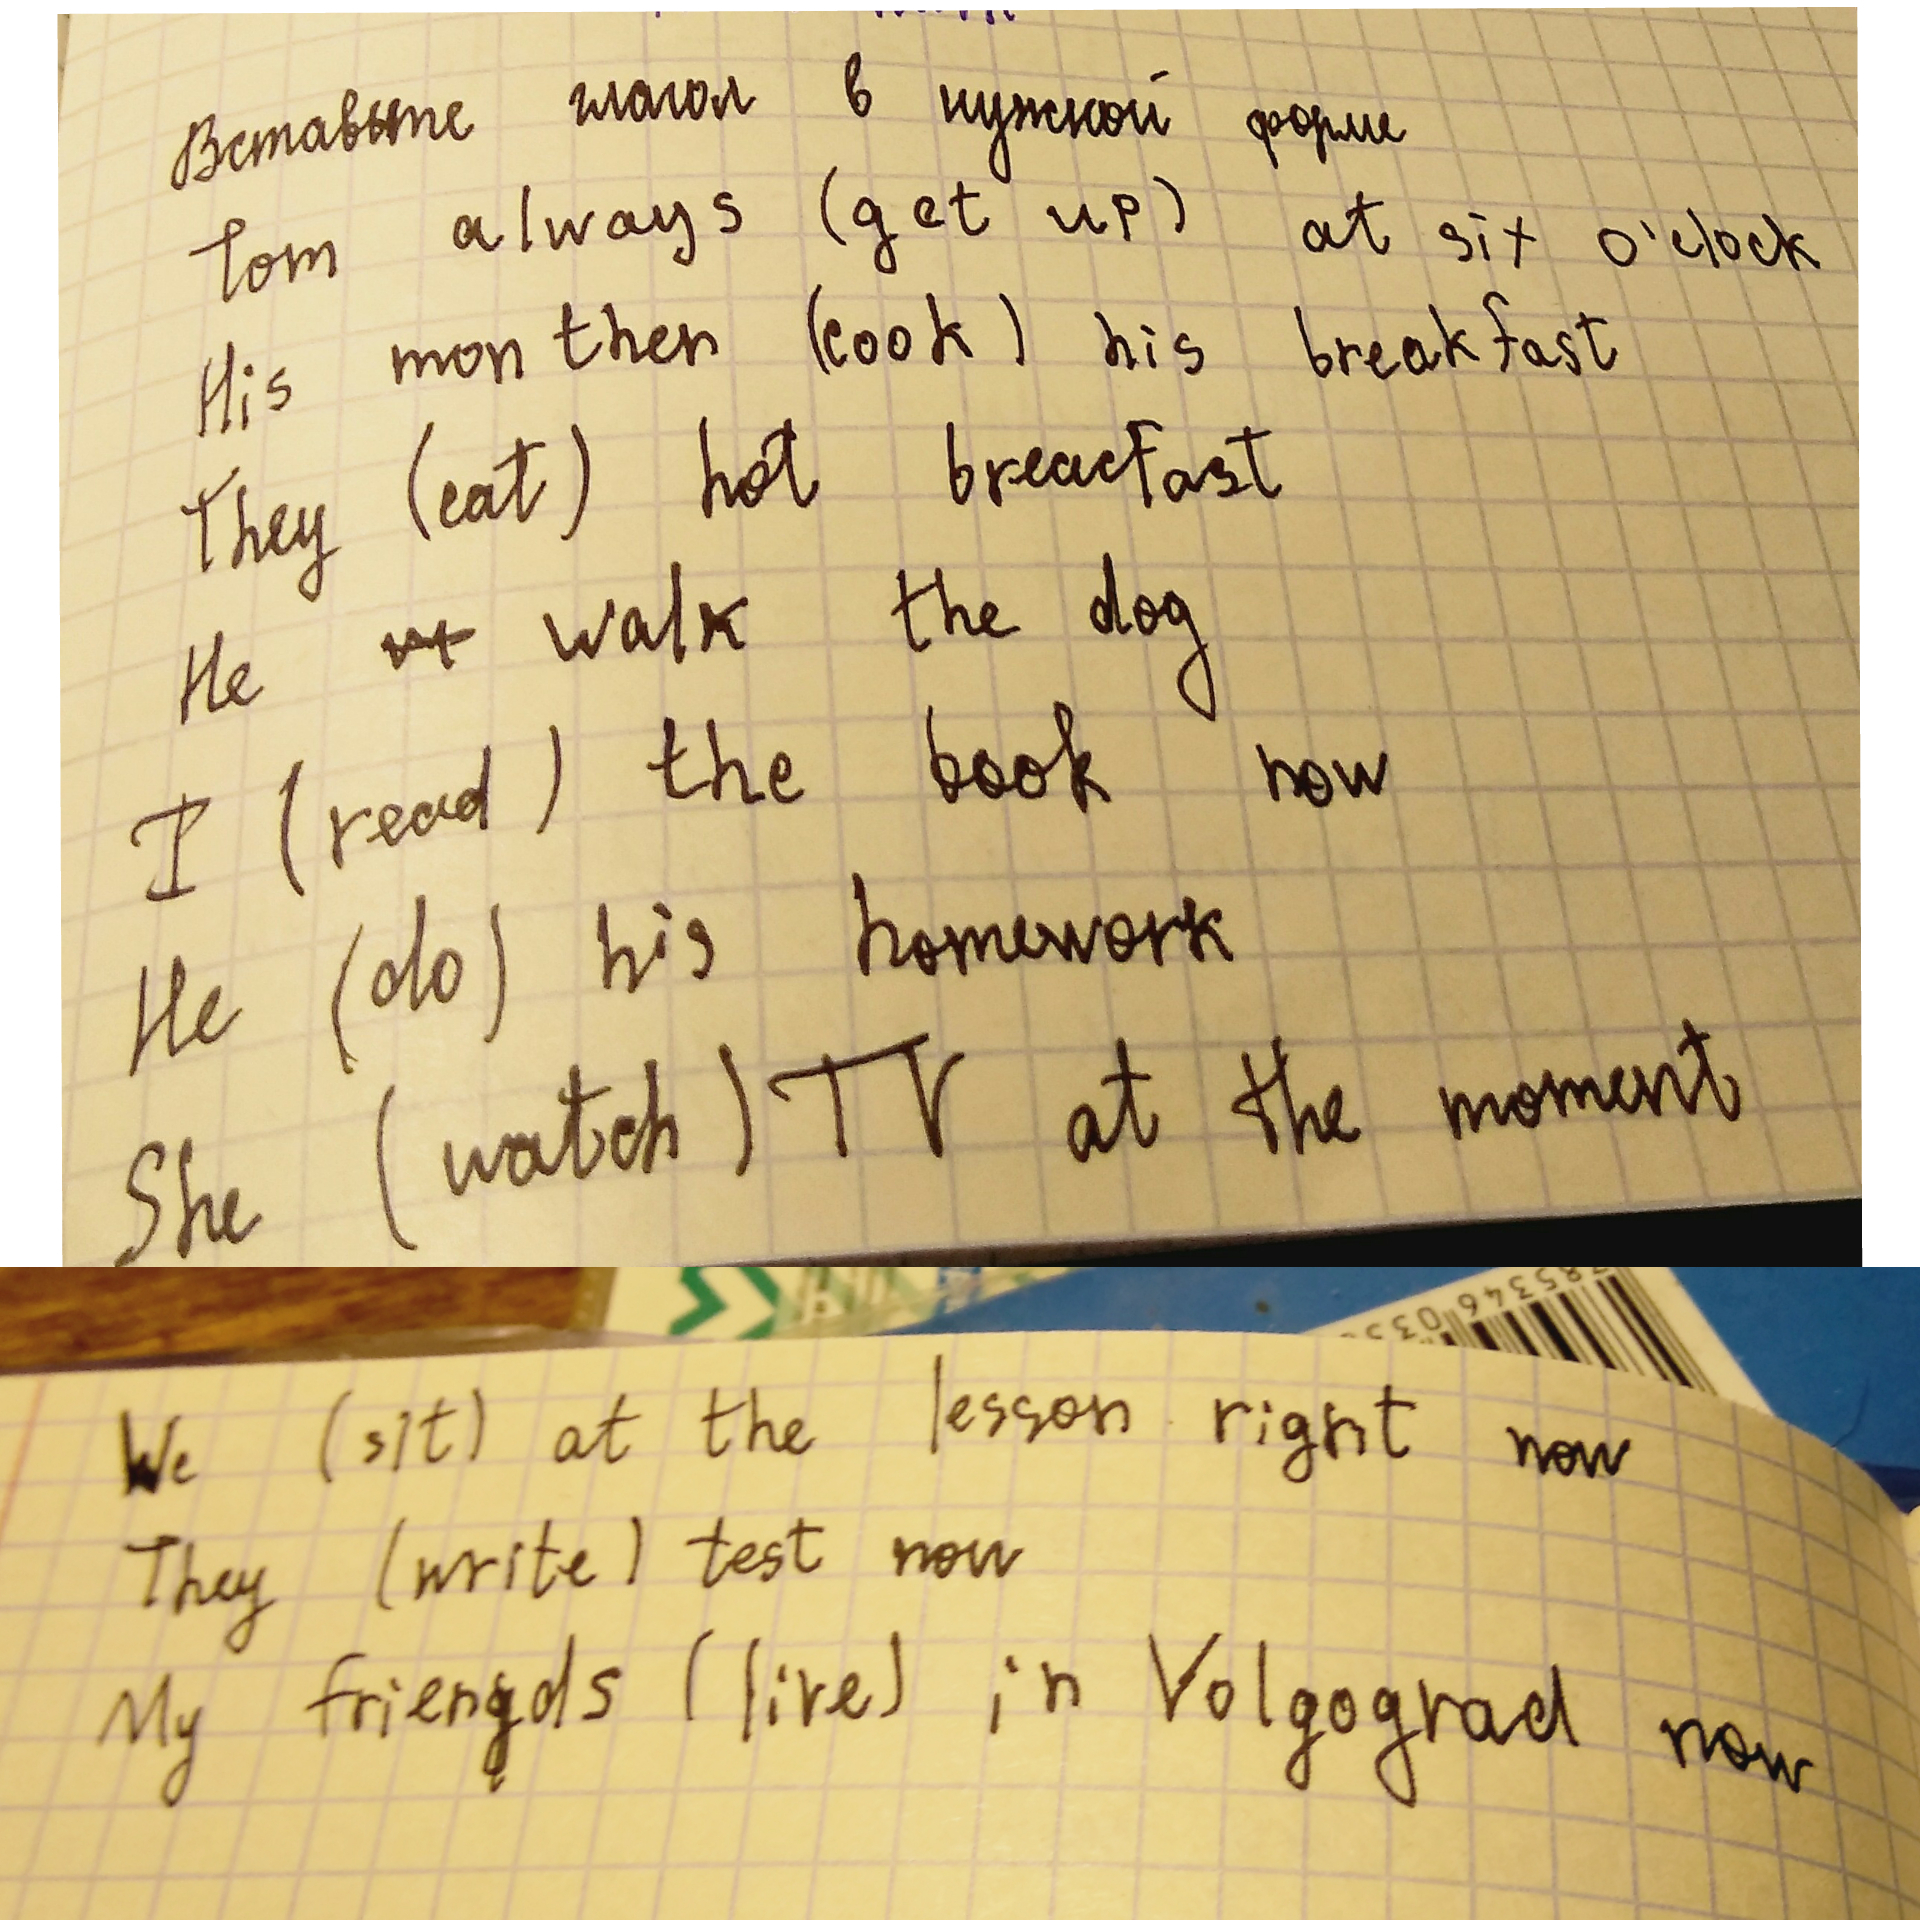 Вставьте глагол в нужной форме
Tom always (get up) at six o'clock
His monther (cook) his breakfast
They (eat) hot breacfast
He walk the dog
I (read) the book now
He (do) his homework
She (watch) TV at the moment
785346 035
We (sit) at the lesson right now
They (write) test now
My friengds (live) in Volgograd now